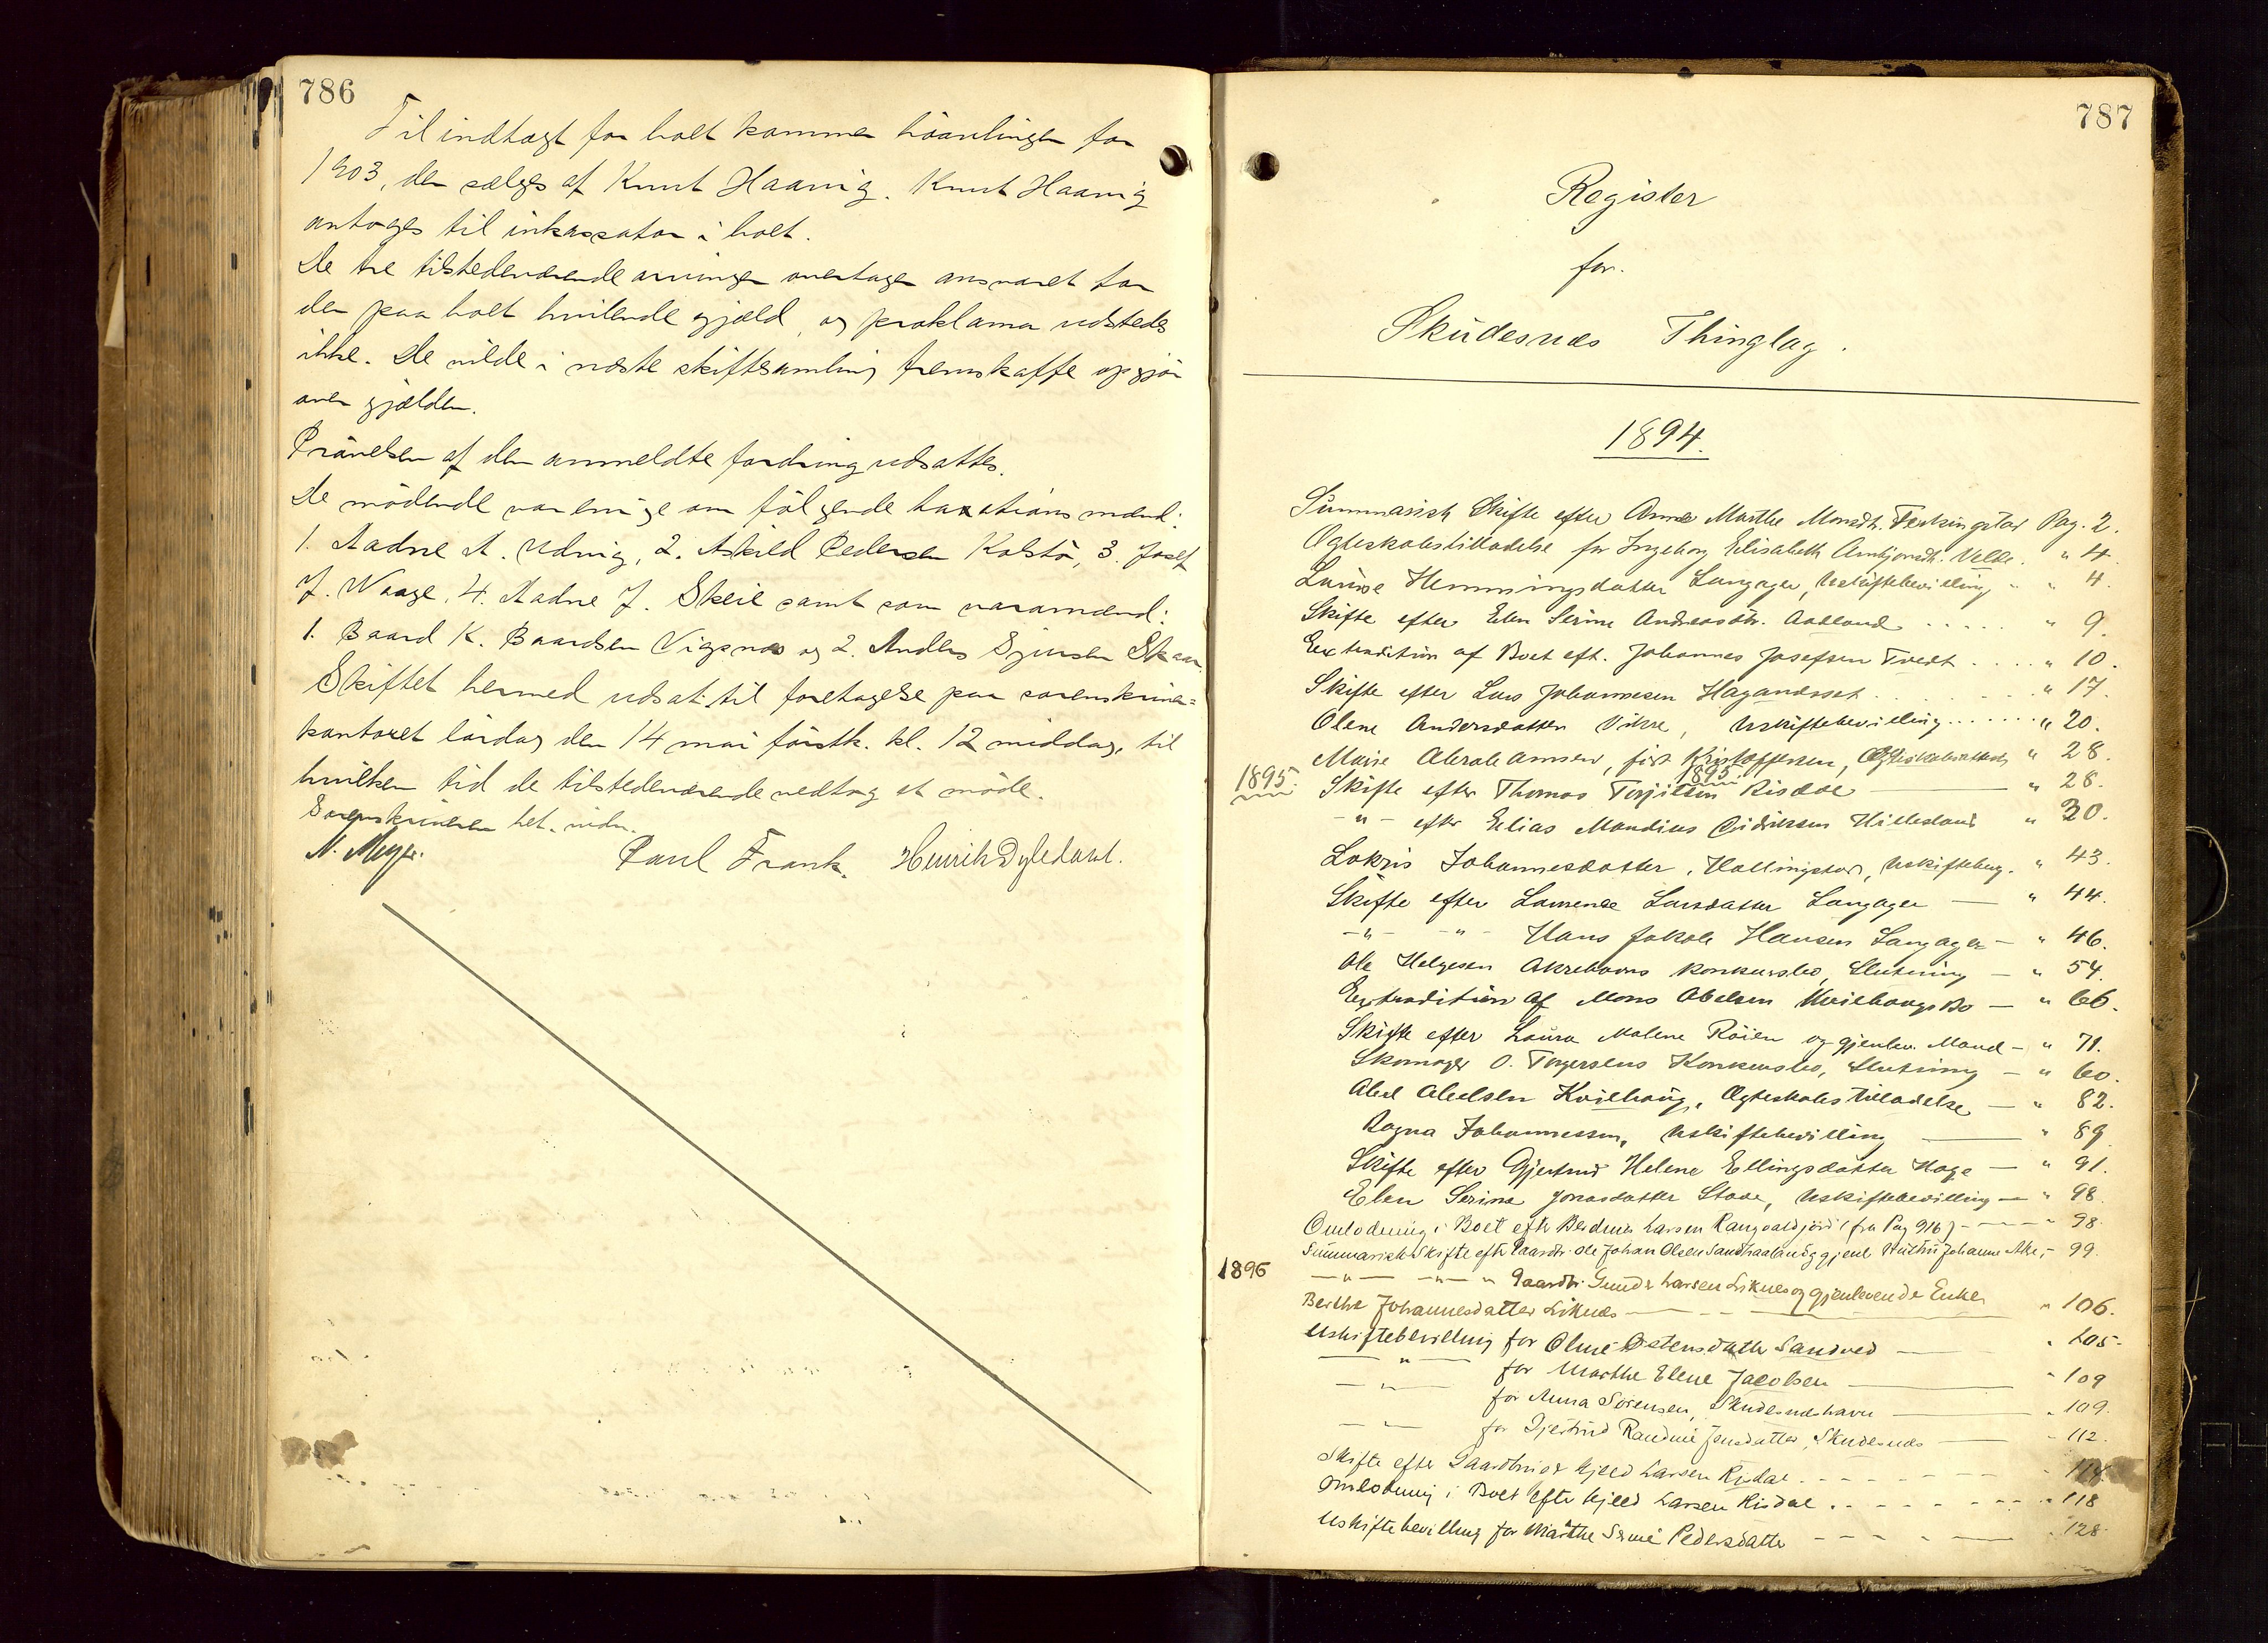 786
Til indtægt for boet kommer höavlingen for
1903, den sælges af Knut Haavig. Knut Haavig
antoges til inkassator i boet.
De tre tilstedeværende arvinger overtager ansvaret for
den paa boet hvilende gjæld, og proklama udstedes
ikke. De vilde i næste skiftesamling fremskaffe opgjör
over gjælden.
Prövelsen af den anmeldte fordring udsattes.
De mödende var enige om fölgende taxationsmænd:
1. Aadne A. Udvig, 2. Askild Pedersen Kolstö, 3. Josef
J. Waage, 4. Aadne J. Skeie samt som varamænd:
1. Baard K. Baardsen Vigsnæs og 2. Anders Skaar
Skiftet hermed udsat til foretagelse paa sorenskriver=
kontoret lördag den 14 mai förstk. kl. 12 middag, til
hvilken tid de tilstedeværende vedtog at möde.
Sorenskriveren bet. vidn.
N. Meyer. Paul Frank. Henrik Dyledahl.
787
Register
for
Skudesnæs Thinglag.
1894.
Summarisk Skifte efter Anne Marthe Monsdtr. Ferkingstad Pag. 2.
Ægteskabstilladelse for Ingeborg Elisabeth Arnbjørnsdtr. Velde. " 4.
Lovise Hemmingsdatter Langager, Uskiftebevilling " 4.
Skifte efter Elen Serine Andreasdtr. Aadland ..... " 9.
Extradition af Boet eft. Johannes Josefsen Tvedt .... " 10.
Skifte efter Lars Johannesen Hagandsset ..... " 17.
Olene Andersdatter Vikre, Uskiftebevilling ...... " 20.
Maire Abrahamsen, født Kristoffersen, Ægteskabsattest " 28.
1895. Skifte efter Thomas Terjitsen 1895 Risdal — " 28.
-"- efter Elias Mandius Didriksen Hillesland " 30.
Lokris Johannesdatter, Hallingstad, Uskiftebevg. " 43.
Skifte efter Laurense Larsdatter Langager — " 44.
-"- -"- Hans Jakob Hansen Langager — " 46.
Ole Helgesen Akrehavns konkursbo, Slutning — " 54.
Extradition af Mons Abelsen Kvilhaugs Bo — " 66.
Skifte efter Laura Malene Röien og gjenlev. Mand — " 71.
Skomager O. Torgersens Konkursbo, Slutning — " 60.
Abel Abelsen Kvilhaug, Ægteskabstilladelse — " 82.
Ragna Johannessen, Uskiftebevilling — " 89
Skifte efter Gjertrud Helene Ellingsdatter Hage — " 91.
Elen Serine Jonasdatter Stave, Uskiftebevilling — " 98.
Omlodning i Boet efter Larsen Rangvaldsjörd (fra Pag 916) - - - " 98.
Summarisk Skifte efter Gaardbr. Ole Johan Olsen Sandhaaland og gjenl. Johanne - 99.
1896 —"— —"— " Gaardbr. Gunder Larsen Liknes og gjenlevende Enke
Berthe Johannesdatter Liknes — " 106.
Uskiftebevilling for Oline Østensdatter Sandved — " 105.
—"— for Marthe Elene Jacobsen — " 109
—"— for Anna Sörensen, Skudesneshavn — " 109.
—"— for Gjertrud Randine Jensdatter, Skudesnæs — " 112.
Skifte efter Gaardbruger Kjeld Larsen Risdal . - - - " 114
Omlodning i Boet efter Kjeld Larsen Risdal . - - - " 118
Uskiftebevilling for Marthe Serine Pedersdatter - - - — " 128